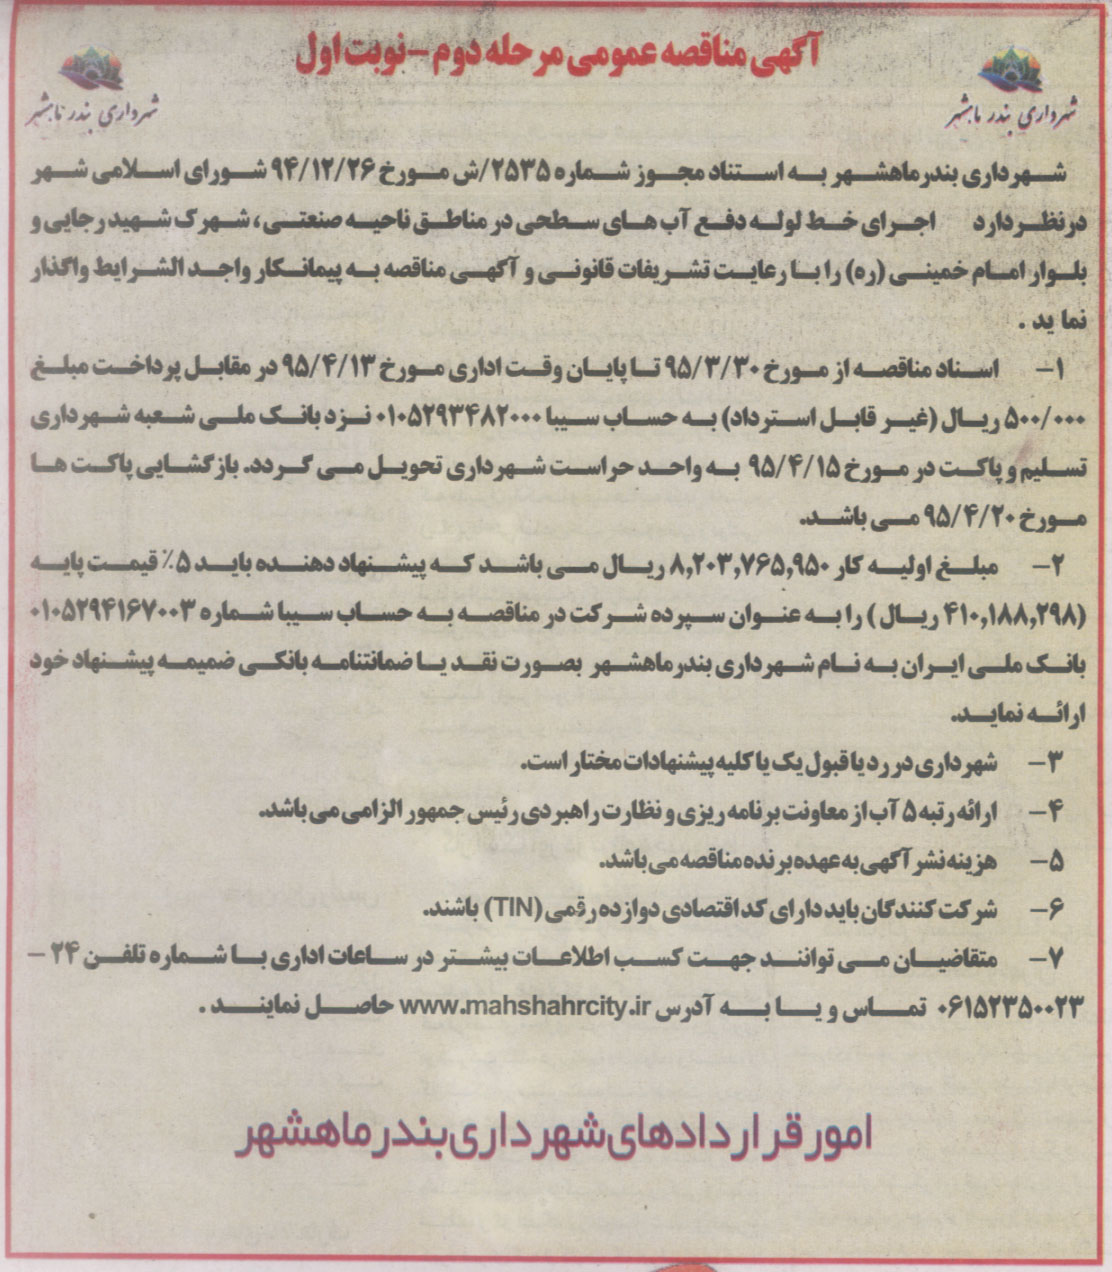 آگهی مناقصه عمومی مرحله دوم - نوبت اول
شهرداری بندر ماهشهر
شهرداری بندر ماهشهر
شهرداری بندرماهشهر به استناد مجوز شماره ۲۵۳۵/ش مورخ ۹۴/۱۲/۲۶ شورای اسلامی شهر
درنظر دارد اجرای خط لوله دفع آب های سطحی در مناطق ناحیه صنعتی، شهرک شهید رجایی و
بلوار امام خمینی (ره) را با رعایت تشریفات قانونی و آگهی مناقصه به پیمانکار واجد الشرایط واگذار
نما ید .
۱- اسناد مناقصه از مورخ ۹۵/۳/۳۰ تا پایان وقت اداری مورخ ۹۵/۴/۱۳ در مقابل پرداخت مبلغ
۵۰۰/۰۰۰ ریال (غیر قابل استرداد) به حساب سیبا ۰۱۰۵۲۹۳۴۸۲۰۰۰ نزد بانک ملی شعبه شهرداری
تسلیم و پاکت در مورخ ۹۵/۴/۱۵ به واحد حراست شهرداری تحویل می گردد. بازگشایی پاکت ها
مورخ ۹۵/۴/۲۰ می باشد.
۲- مبلغ اولیه کار ۸,۲۰۳,۷۶۵,۹۵۰ ریال می باشد که پیشنهاد دهنده باید ۵٪ قیمت پایه
(۴۱۰,۱۸۸,۲۹۸ ریال) را به عنوان سپرده شرکت در مناقصه به حساب سیبا شماره ۰۱۰۵۲۹۴۱۶۷۰۰۳
بانک ملی ایران به نام شهرداری بندرماهشهر بصورت نقد یا ضمانتنامه بانکی ضمیمه پیشنهاد خود
ارائه نماید.
۳- شهرداری در رد یا قبول یک یا کلیه پیشنهادات مختار است.
۴- ارائه رتبه ۵ آب از معاونت برنامه ریزی و نظارت راهبردی رئیس جمهور الزامی می باشد.
۵- هزینه نشر آگهی به عهده برنده مناقصه می باشد.
۶- شرکت کنندگان باید دارای کد اقتصادی دوازده رقمی (TIN) باشند.
۷- متقاضیان می توانند جهت کسب اطلاعات بیشتر در ساعات اداری با شماره تلفن ۲۴ -
۰۶۱۵۲۳۵۰۰۲۳ تماس و یا به آدرس www.mahshahrcity.ir حاصل نمایند .
امور قراردادهای شهرداری بندر ماهشهر